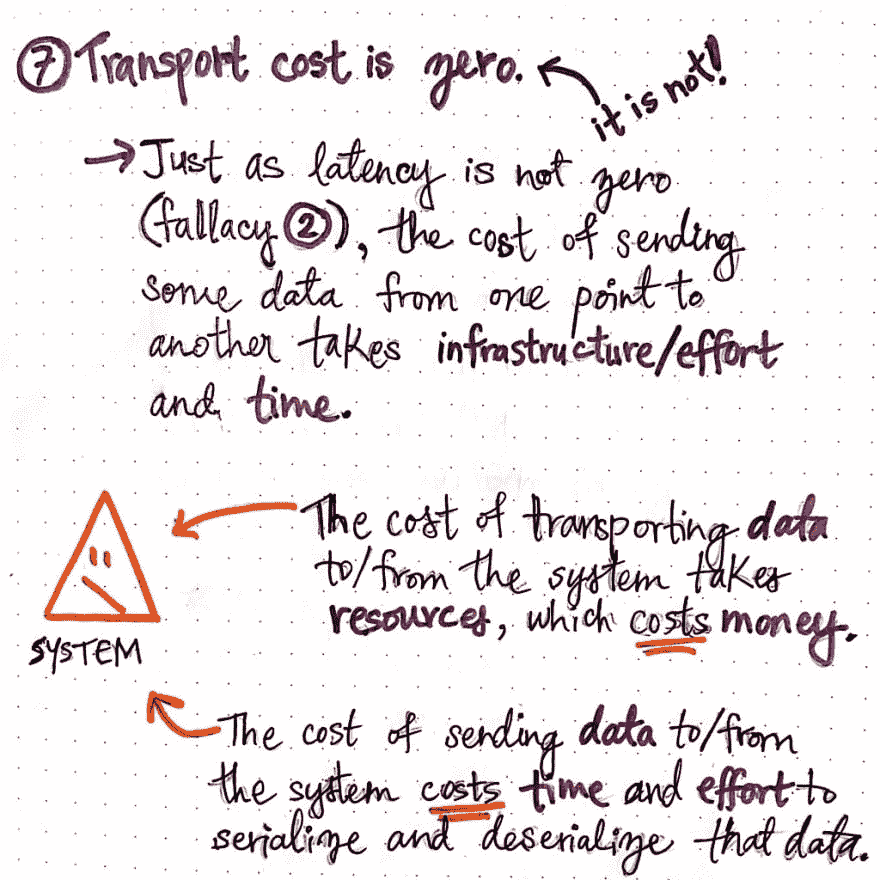 ⑦ Transport cost is zero.
it is not!
→ Just as latency is not zero
(fallacy ②), the cost of sending
some data from one point to
another takes infrastructure/effort
and time.
The cost of transporting data
to/from the system takes
resources, which costs money.
SYSTEM
The cost of sending data to/from
the system costs time and effort to
serialize and deserialize that data.